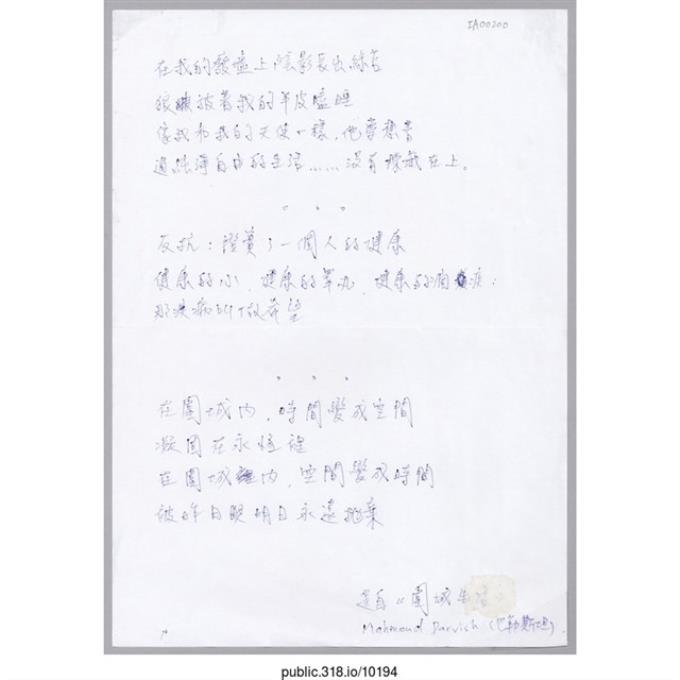 IA00200
在我的廢墟上陰影長出綠意
狼披著我的羊皮瞌睡
像我和我的天使一樣，他夢想著
過純淨自由的生活……沒有
在上。
反抗：證實了一個人的健康
健康的心，健康的睪丸，健康的疾：
那疾病叫做希望
在圍城內，時間變成空間
凝固在永恆裡
在圍城內，空間變成時間
被昨日跟明日永遠拋棄
選自《圍城
Mahmoud Darwish (巴勒斯坦)
public.318.io/10194